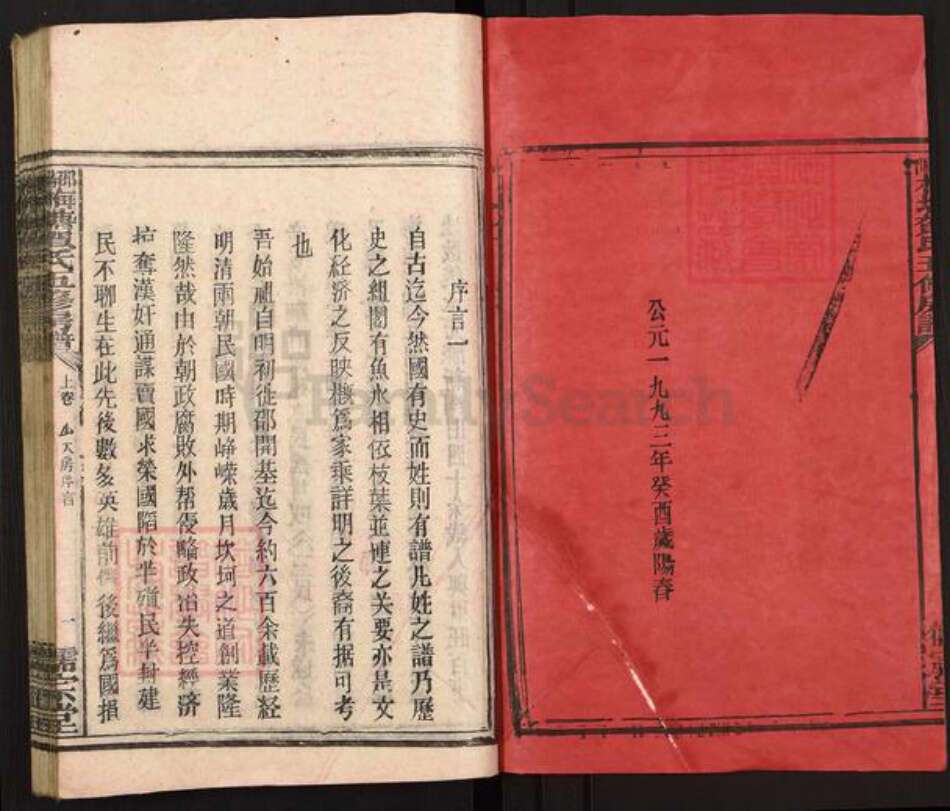 公元一九九三年癸酉歲陽春
序言一
自古迄今然國有史而姓則有譜凡姓之譜乃歷
史之組閣有魚水相依枝葉並連之关要亦是文
化経済之反映概爲家乘詳明之後裔有据可考
也
吾始祖自明初徙邵開基迄今約六百余載歷経
明清兩朝民國時期峥嵘歲月坎坷之道創業隆
隆然哉由於朝政腐敗外帮侵略政治失控經济
抢奪漢奸通謀賣國求榮國陷於半殖民半封建
民不聊生在此先後數多英雄前 後継爲國損
上卷
房序言
一
儒宗堂
FamilySearch